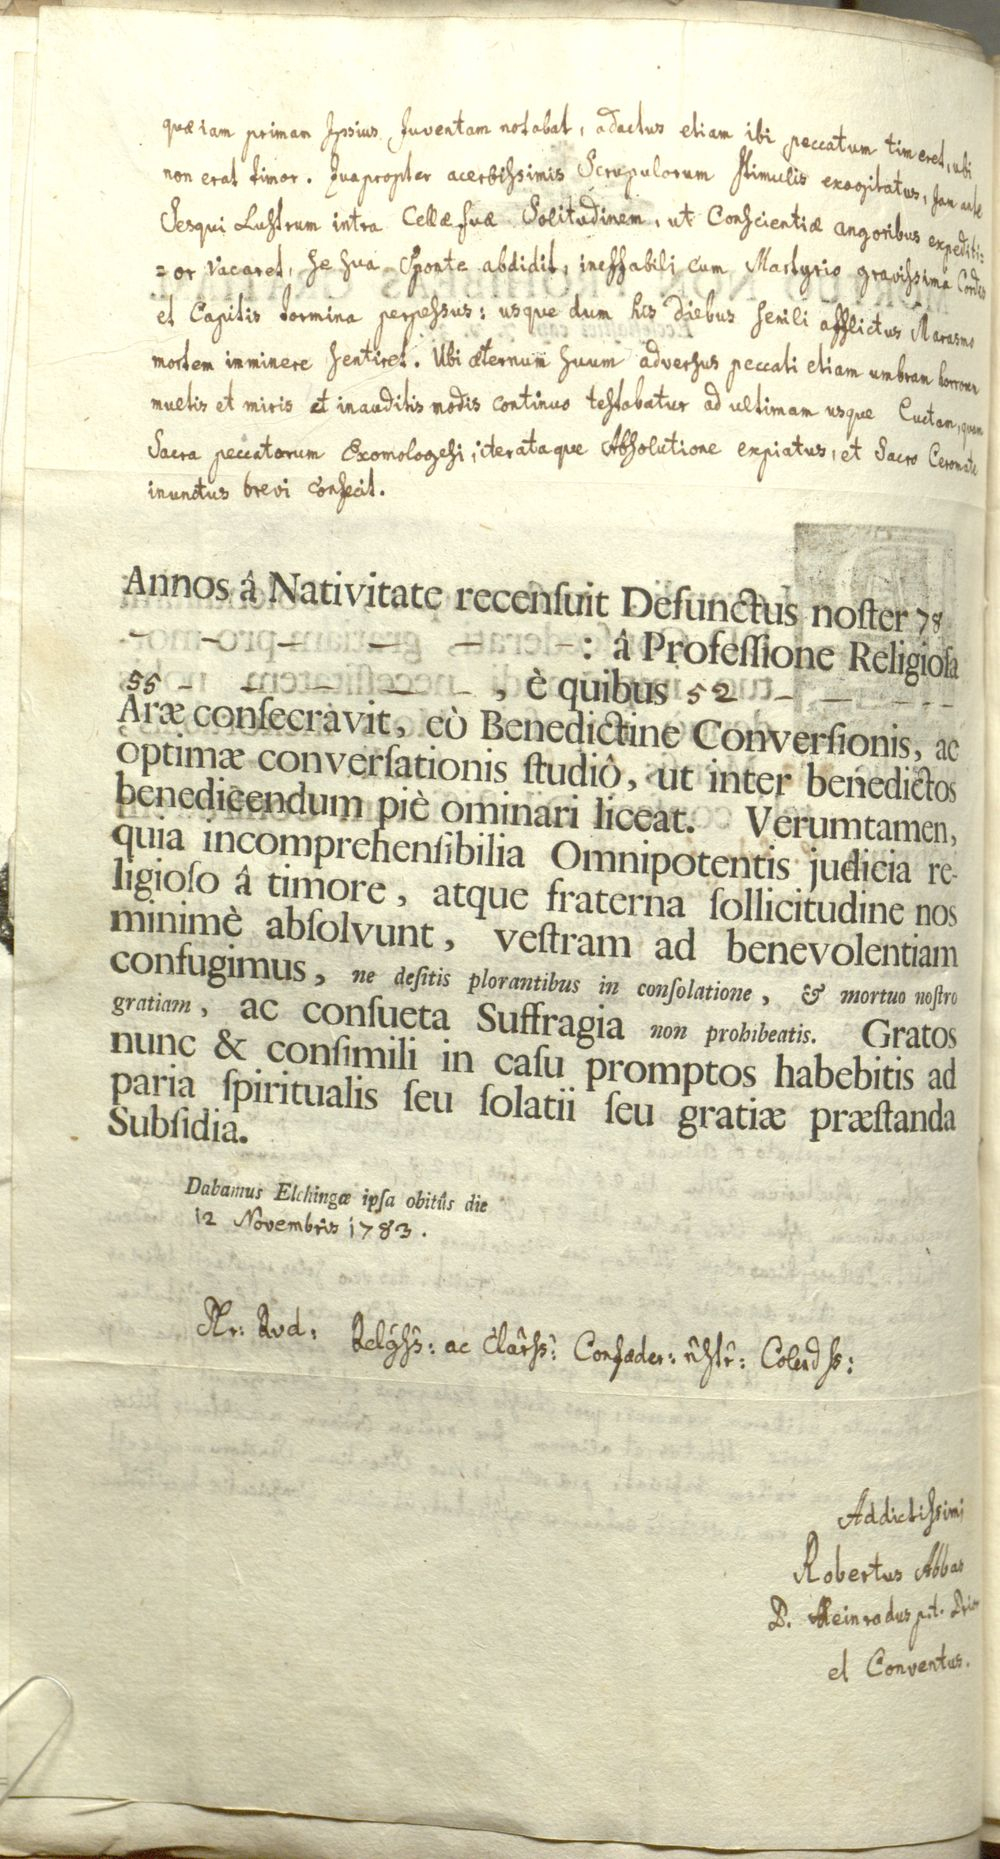 quæ iam primam Ipsius Juventam notabat, adactus etiam ibi peccatum timeret, ubi
non erat timor. Quapropter acerbissimis Scrupulorum stimulis exagitatus, Jam ante
Sesqui Lustrum intra Cellæ suæ Solitudinem, ut Conscientiæ angoribus expediti=
=or Vacaret, se sua Sponte abdidit, ineffabili cum Martyrio gravissima Cordis
et Capitis tormina perpessus: usque dum his diebus senili afflictus Marasmo
mortem imminere sentiret. Ubi æternum suum adversus peccati etiam umbram horrorem
multis et miris et inauditis modis continuo testabatur ad ultimam usque Luctam, quam
Sacra peccatorum Exomologesi, iterataque Absolutione expiatus, et Sacro Ceromate
inunctus brevi confecit.
Annos â Nativitate recensuit Defunctus noster 78
— — — — — : â Professione Religiosa
55 — — — — — , è quibus 52 — — — —
Aræ consecravit, eò Benedictine Conversionis, ac
optimæ conversationis studiô, ut inter benedictos
benedicendum piè ominari liceat. Verumtamen,
quia incomprehensibilia Omnipotentis judicia re-
ligioso â timore, atque fraterna sollicitudine nos
minimè absolvunt, vestram ad benevolentiam
confugimus, ne desitis plorantibus in consolatione, & mortuo nostro
gratiam, ac consueta Suffragia non prohibeatis. Gratos
nunc & consimili in casu promptos habebitis ad
paria spiritualis seu solatii seu gratiæ præstanda
Subsidia.
Dabamus Elchingæ ipsa obitûs die
12 Novembris 1783.
Rvd: Relgss: ac Clarss: Confæder: nstr: Colendss:
Addictissimi
Robertus Abbas
P. Meinradus p.t. Prior
et Conventus.